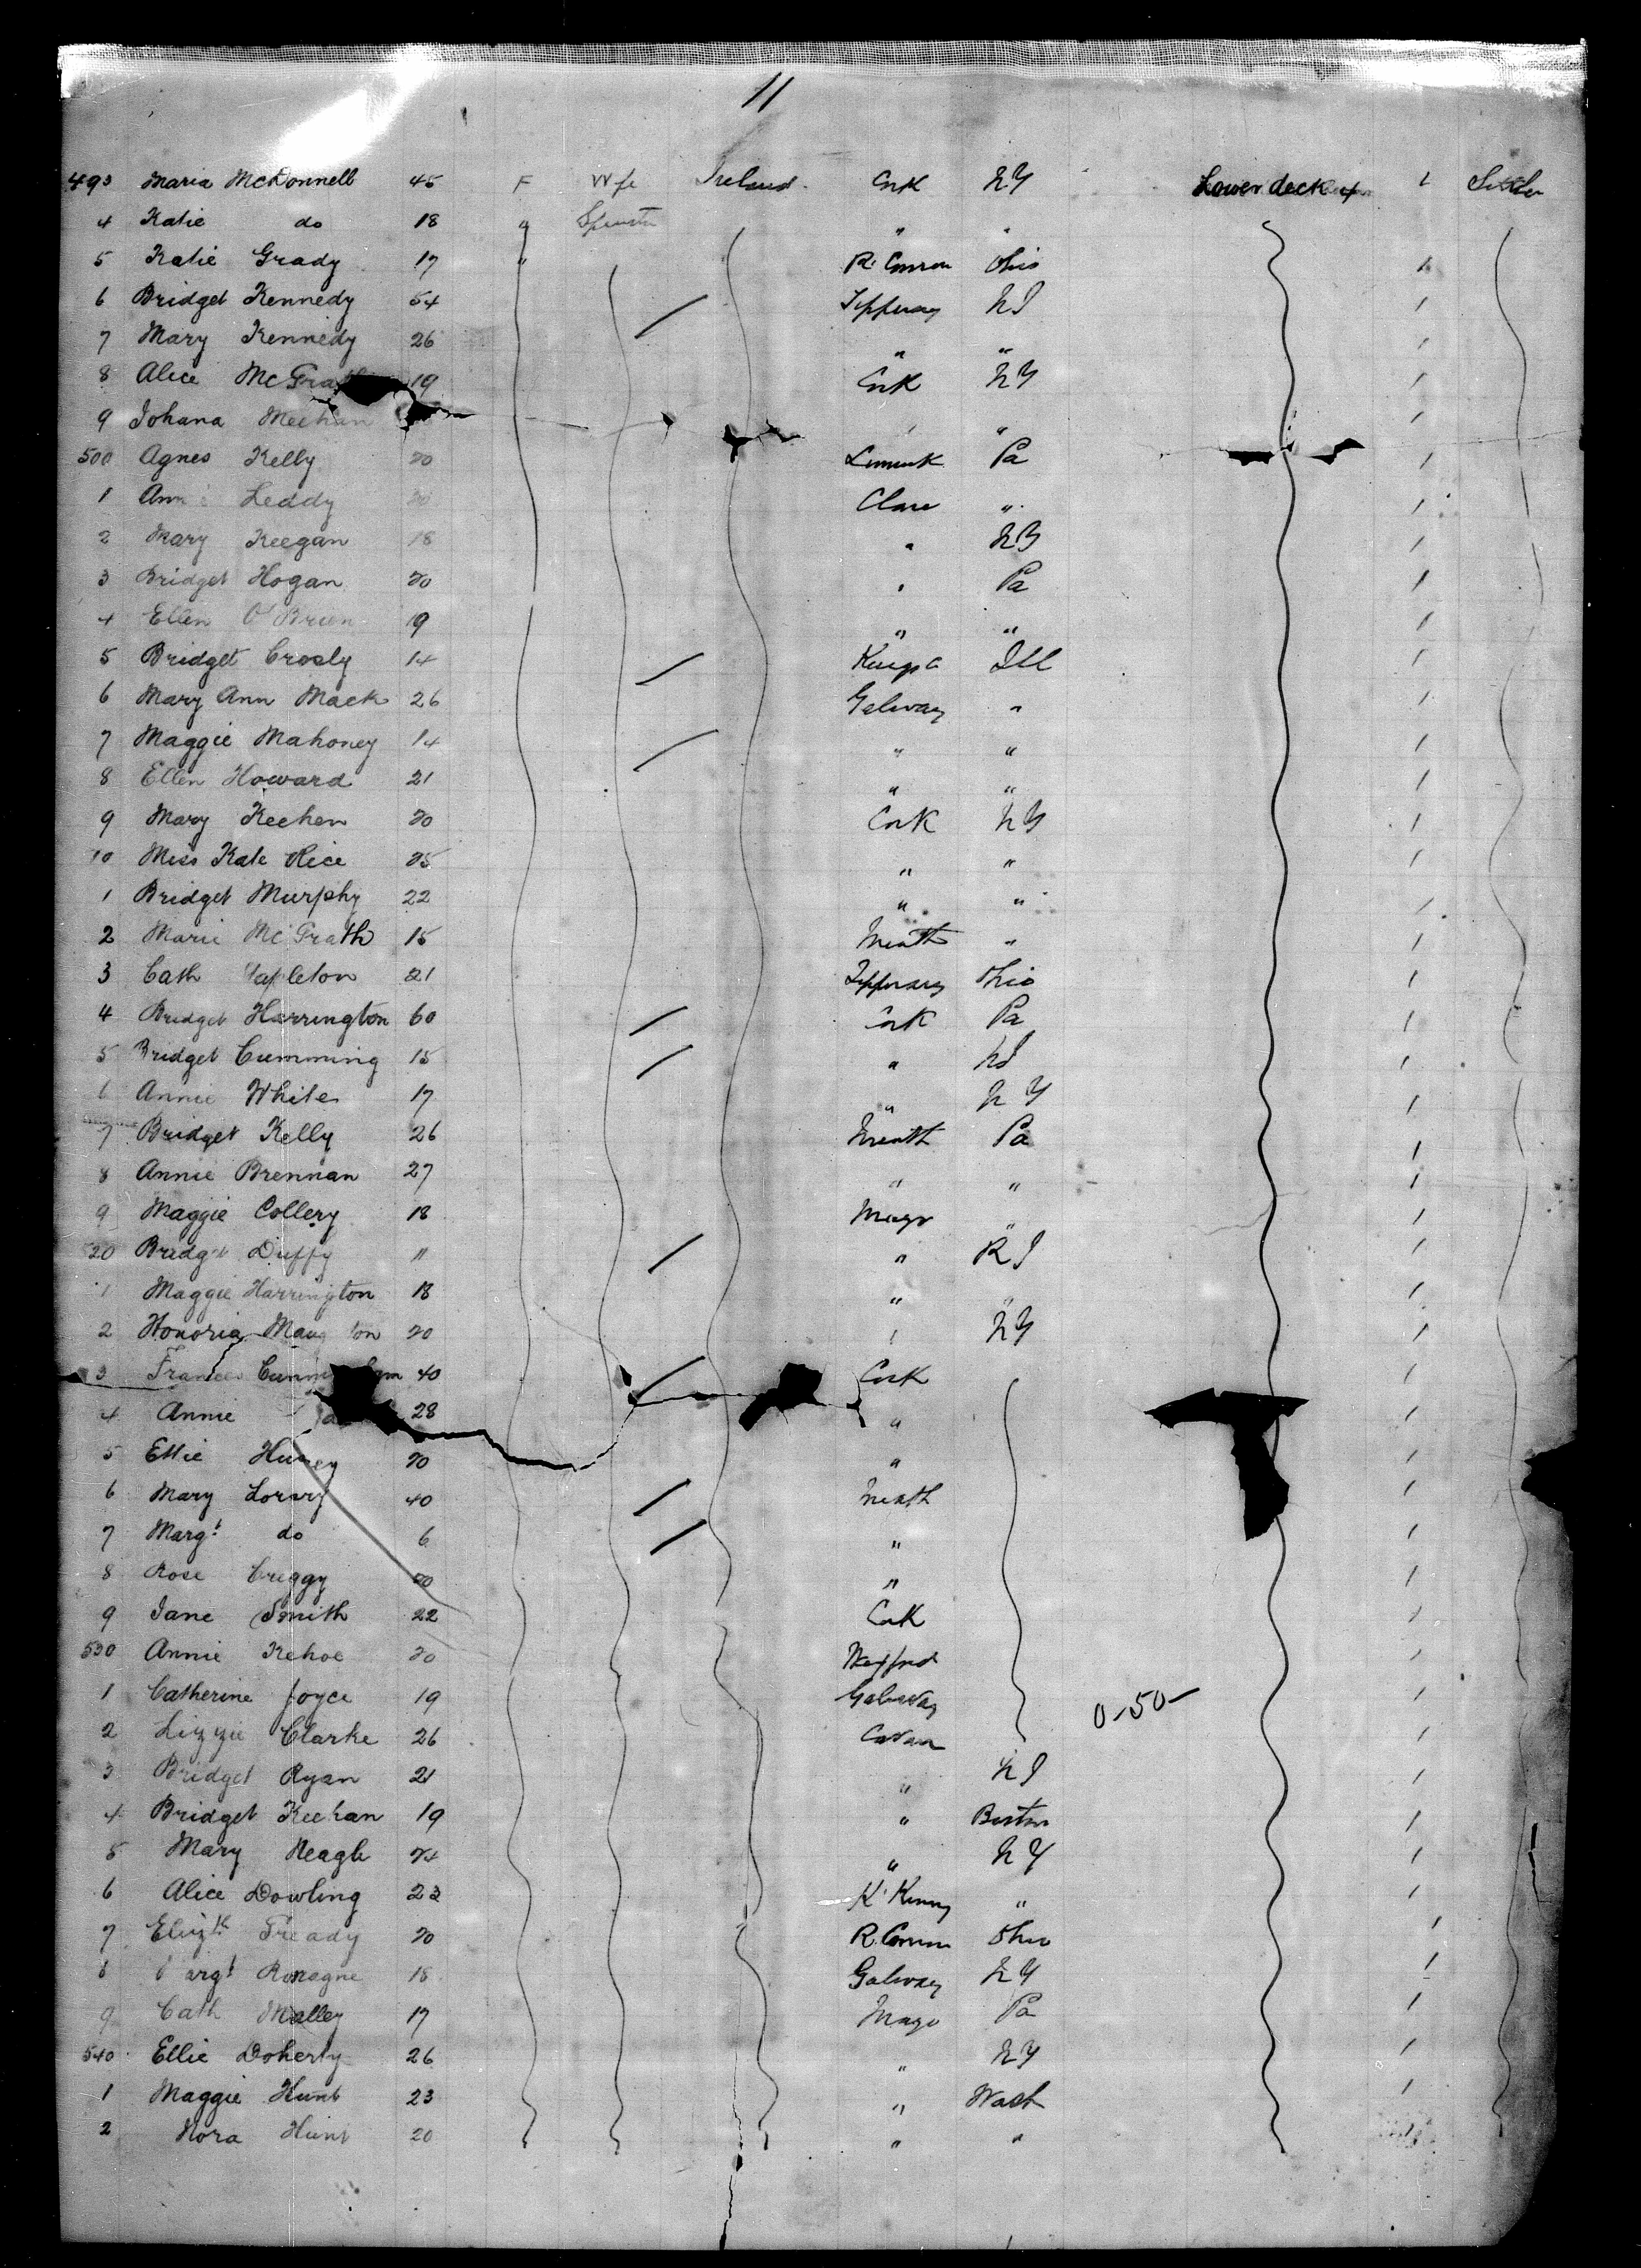 11
493 Maria McDonnell 45 F Wfe Ireland Cork NY Lower deck 4 1 Settler
4 Katie do 18 " Spinster " "
5 Katie Grady 17 " R. Common Ohio 1
6 Bridget Kennedy 54 Tipperary NJ 1
7 Mary Kennedy 26 " " 1
8 Alice McGrath 19 Cork NY 1
9 Johana Meehan " 1
500 Agnes Kelly 20 Limerick Pa 1
1 Leddy 20 Clare " 1
2 Mary Keegan 18 " NY 1
3 Bridget Hogan 20 " Pa 1
4 Ellen O'Brien 19 " " 1
5 Bridget Crosly 14 Kings C Ill 1
6 Mary Ann Mack 26 Galway " 1
7 Maggie Mahoney 14 " " 1
8 Ellen Howard 21 " " 1
9 Mary Keehen 20 Cork NY 1
10 Miss Kate Rice 25 " " 1
1 Bridget Murphy 22 " " 1
2 Marie McGrath 15 Meath " 1
3 Cath 21 Tipperary Ohio 1
4 Bridget Harrington 60 Cork Pa 1
5 Bridget Cumming 15 " NJ 1
6 Annie White 17 " NY 1
7 Bridget Kelly 26 Meath Pa 1
8 Annie Brennan 27 " " 1
9 Maggie Collery 18 Mayo " 1
20 Bridget Duffy 11 " RI 1
1 Maggie Harrington 18 " " 1
2 Honoria 20 " NY 1
3 Frances 40 Cork 1
4 Annie 28 " 1
5 Ettie 20 " 1
6 Mary Lowry 40 Meath 1
7 Margt do 6 " 1
8 Rose Creggy 20 " 1
9 Jane Smith 22 Cork 1
530 Annie Kehoe 20 Wexford 1
1 Catherine Joyce 19 Galway 0-50- 1
2 Lizzie Clarke 26 Cavan 1
3 Bridget Ryan 21 " NJ 1
4 Bridget Keehan 19 " Boston 1
5 Mary Neagle 24 " NY 1
6 Alice Dowling 23 K'Kenny " 1
7 Elizth 20 R. Common Ohio 1
8 Ronagne 18 Galway NY 1
9 Cath Malley 17 Mayo Pa 1
540 Ellie Doherty 26 " NY 1
1 Maggie Hunt 23 " Wash 1
2 Nora Hunt 20 " " 1